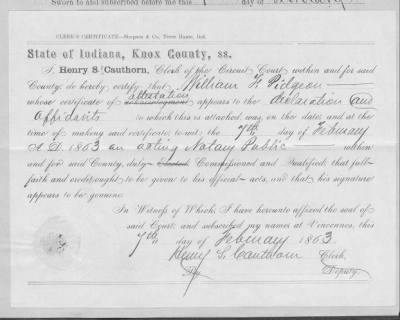 Sworn to and subscribed before me this day of
CLERK'S CERTIFICATE.—Simpson & Co., Terre Haute, Ind.
State of Indiana, Knox County, ss.
I, Henry S. Cauthorn, Clerk of the Circuit Court within and for said
County, do hereby certify that William F. Pidgeon
attestation
whose certificate of acknowledgment appears to the declaration (and
Affidavits to which this is attached, was, on the date, and at the
time of making said certificate, to wit, the 7th day of February
A. D. 1863 an acting Notary Public within
and for said County, duly Elected, Commissioned and Qualified; that full
faith and credit ought to be given to his official acts, and that his signature
appears to be genuine.
In Witness of Which, I have hereunto affixed the seal of
said Court, and subscribed my name, at Vincennes, this
7th day of February 1863.
Henry S. Cauthorn Clerk,
By Deputy.